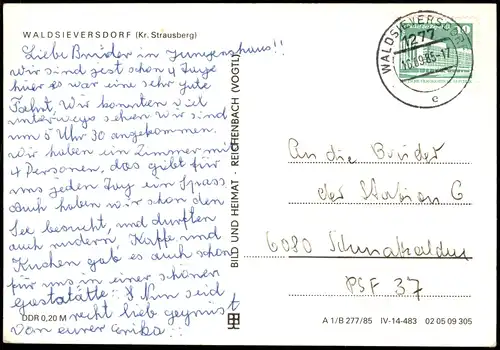 WALDSIEVERSDORF (Kr. Strausberg)
Liebe Brüder im Jungenshaus!!
wir sind jest schon 4 Tage
hier es war eine sehr gute
Fahrt. Wir konnten viel
unterwegs sehen wir sind
um 5 Uhr 30 angekommen.
Wir haben ein Zimmer mit
4 Personen, das gibt für
uns jeden Tag ein Spass
Auch haben wir schon den
See besucht, und durften
auch rudern, Kaffe und
Kuchen gab es auch schon
für uns in einer schönen
Gaststätte :: Nun seid
recht lieb gegrüsst
Von eurer Annika ::
DDR 0,20 M
BILD UND HEIMAT · REICHENBACH (VOGTL)
WALDSIEVERSDORF
1277
10.09.85-
e
10
An die Brüder
der Station 6
6080 Schmalkalden
PSF 37
A 1/B 277/85 IV-14-483 02 05 09 305